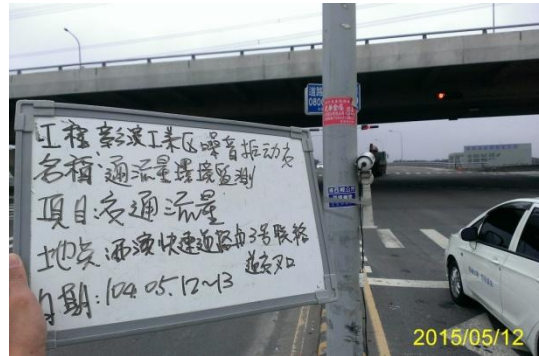 工程彰濱工業区噪音振动交
名稱:通流量環境監測
項目:交通流量
地点:西濱快速道路与3号联絡
道交叉口
日期:104.05.12~13
道路
0800
2015/05/12